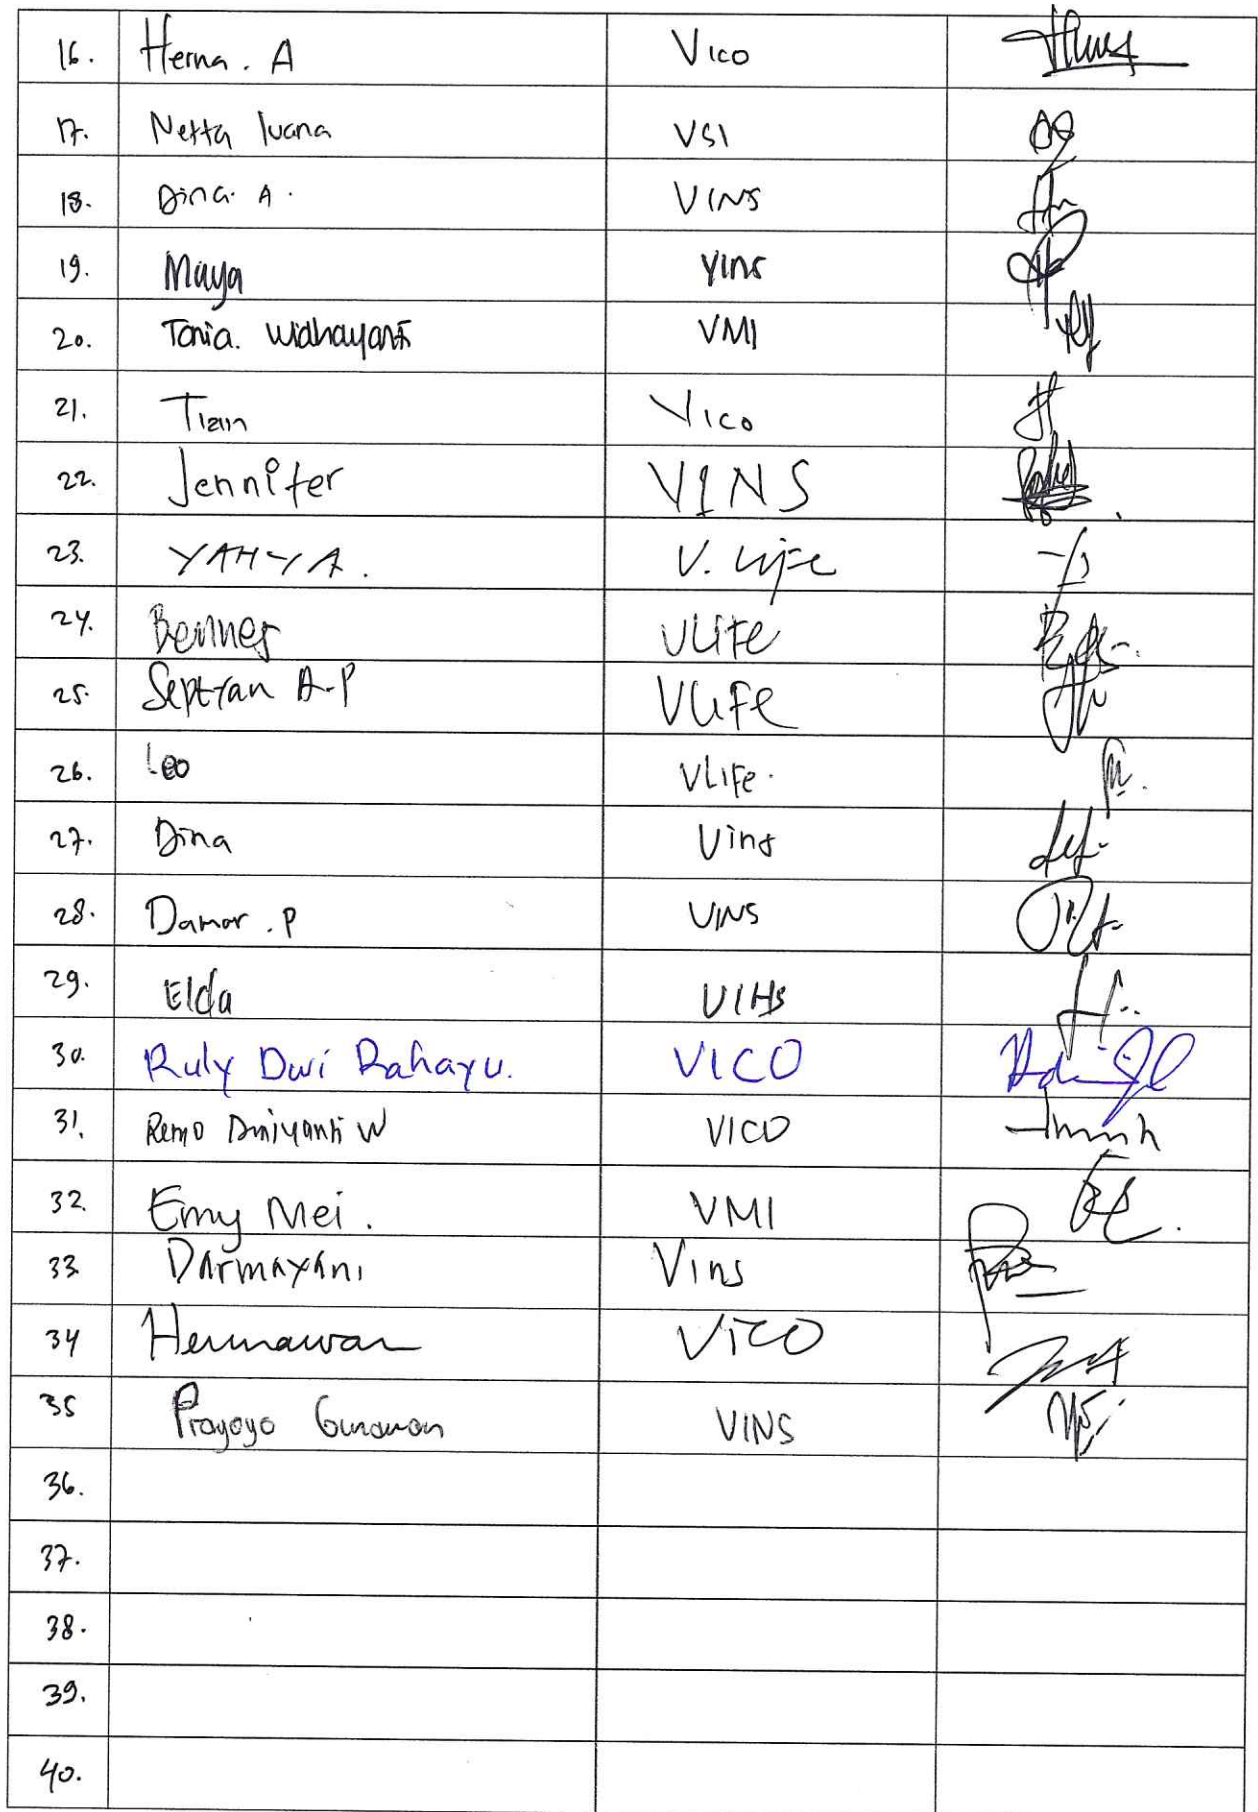 16. Herna. A Vico
17. Netta Ivana VSI
18. Dina. A. VINS
19. Maya Vins
20. Tania. Widhayanti VMI
21. Tian Vico
22. Jennifer VINS
23. YAHYA. V. Life
24. VLIFE
25. Septyan A.P VLIFE
26. Leo VLIFe.
27. Dina Vins
28. Damar. P VINS
29. Elda VINS
30. Ruly Dwi Rahayu. VICO
31. Retno W VICO
32. Emy Mei. VMI
33. DARMAYANI Vins
34 Hermawan VICO
35 Prayogo Gunawan VINS
36.
37.
38.
39.
40.